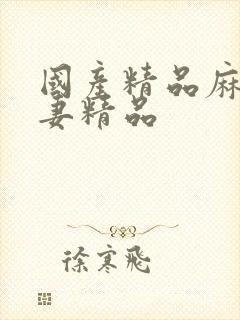 國産精品麻
妻精品
徐寒飛